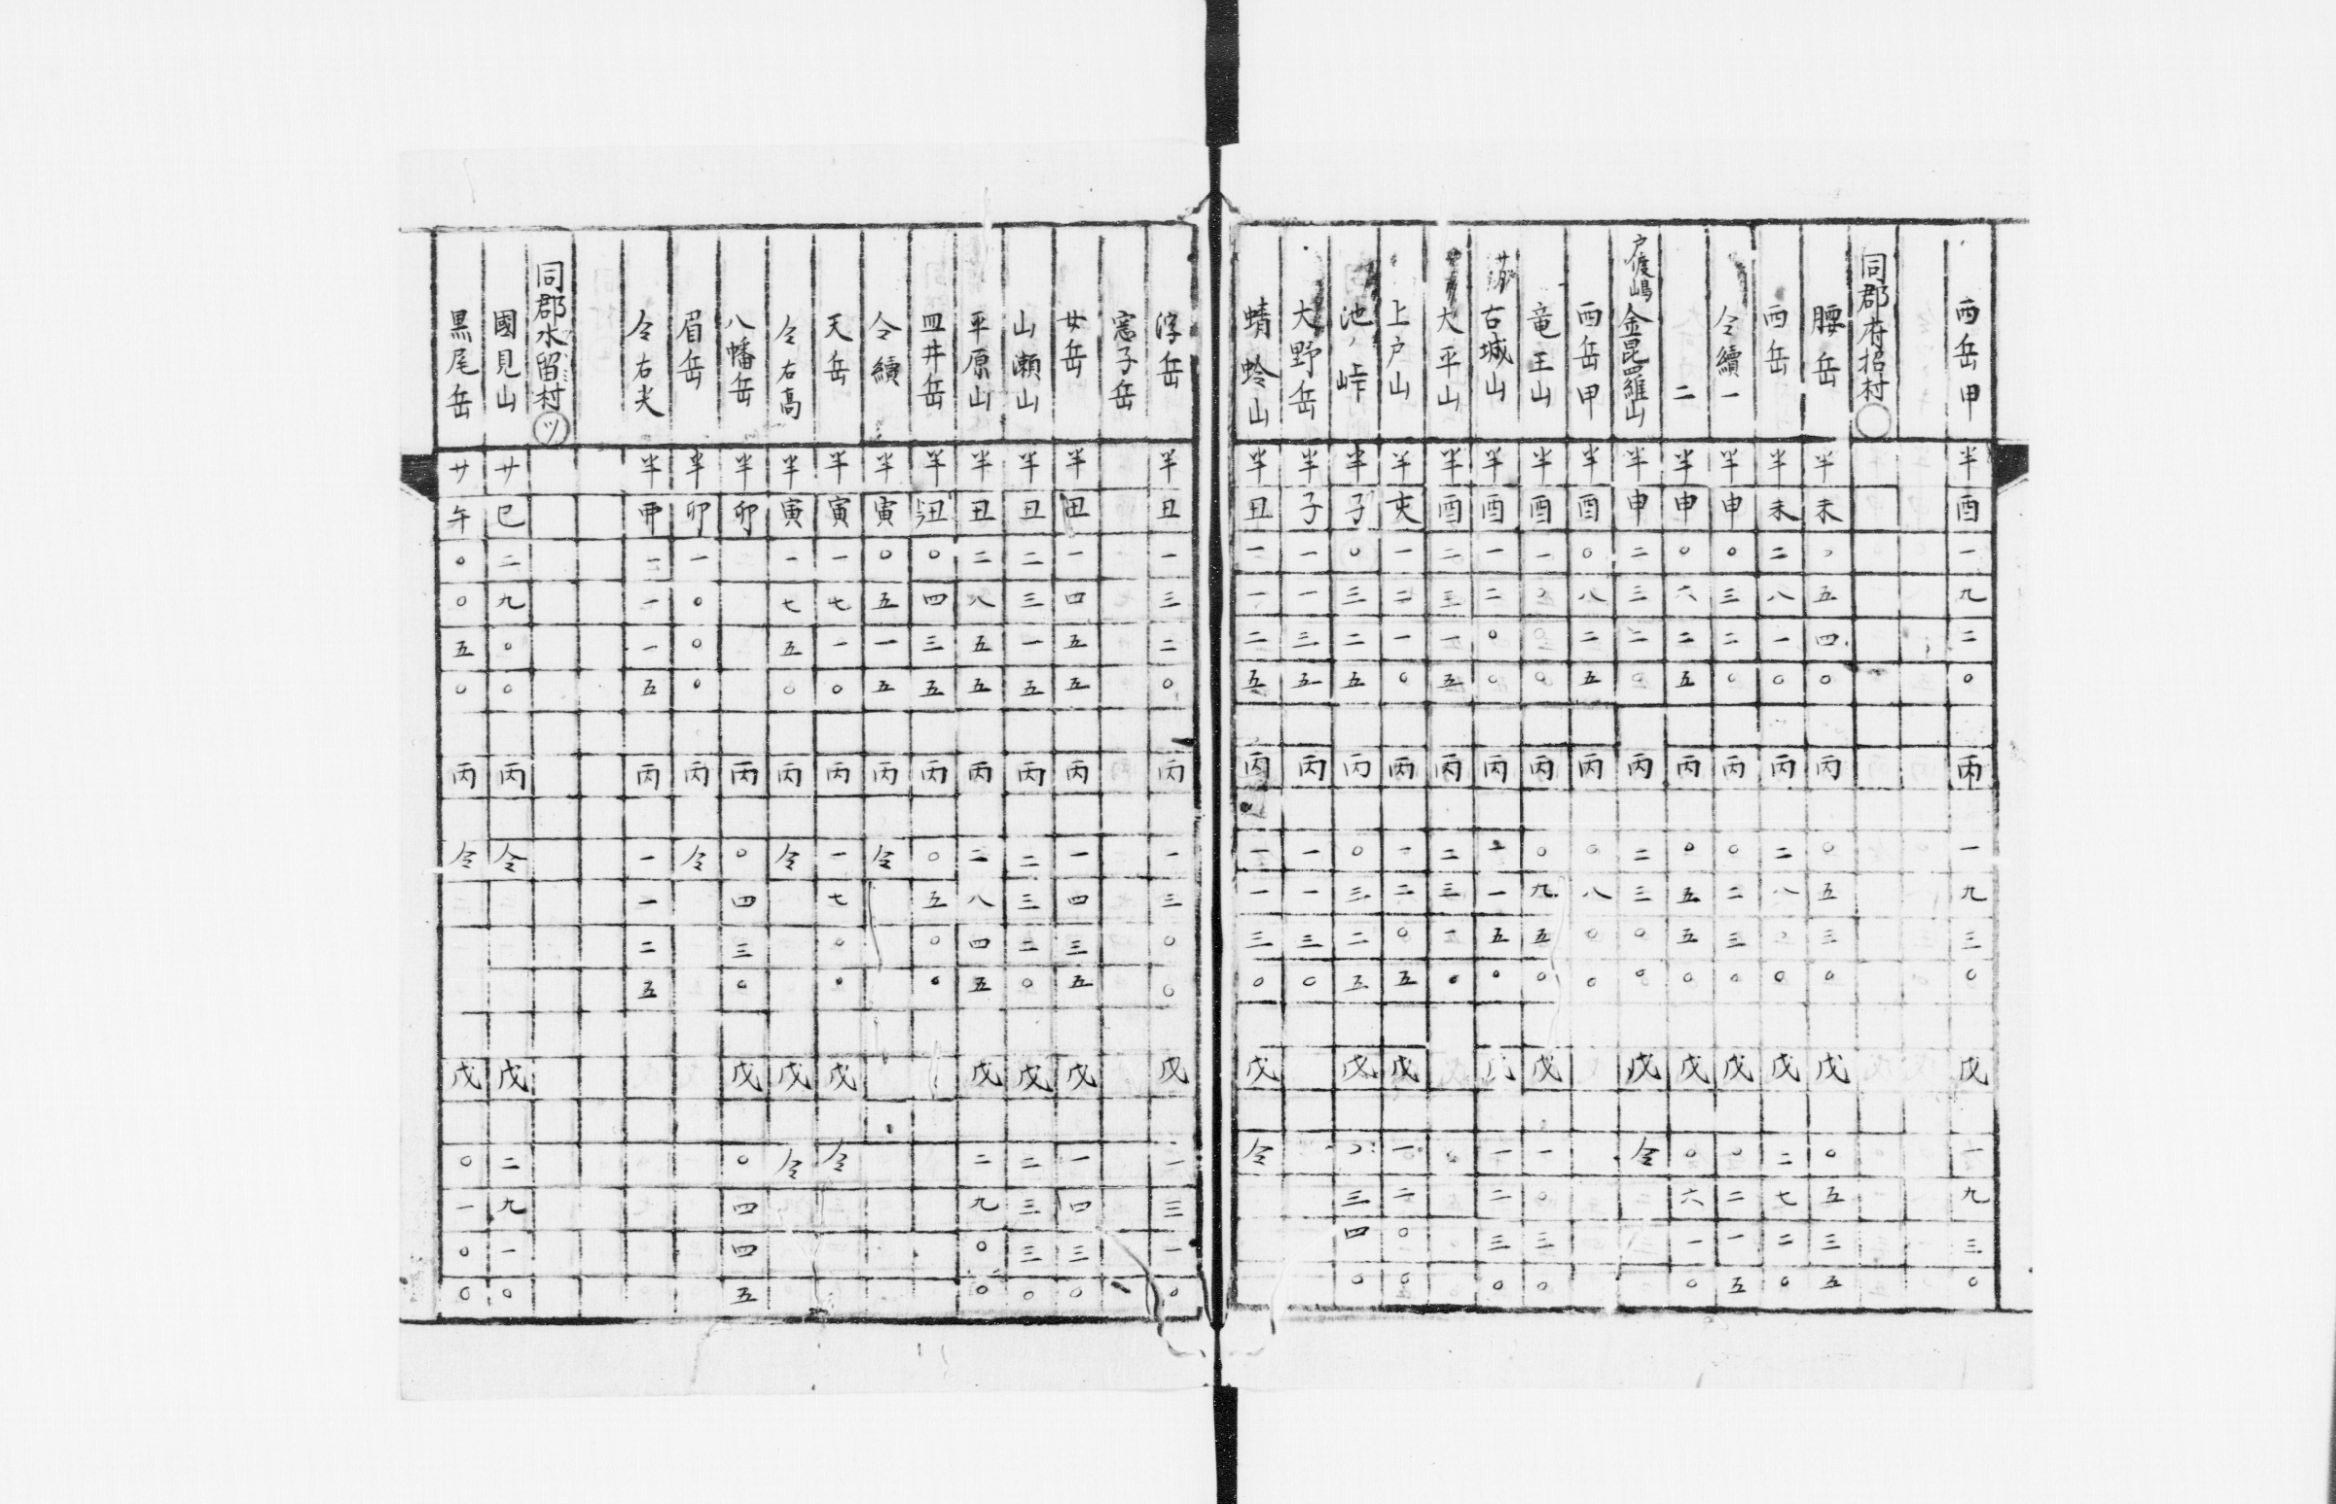 西岳甲 半 酉 一 九 二 〇 丙 一 九 三 〇 戊 一 九 三 〇
同郡府招村〇
腰岳 半 未 〇 五 四 〇 丙 〇 五 三 〇 戊 〇 五 三 五
西岳 半 未 二 八 一 〇 丙 二 八 〇 戊 二 七 二 〇
仝續一 半 申 〇 三 二 〇 丙 〇 二 三 〇 戊 〇 二 一 五
二 半 申 〇 六 二 五 丙 〇 五 五 〇 戊 〇 六 一 〇
金毘羅山 半 申 二 三 二 〇 丙 二 三 〇 〇 戊 仝
西岳甲 半 酉 〇 八 二 五 丙 〇 八 〇 〇
竜王山 半 酉 一 〇 丙 〇 九 五 〇 戊 一 〇 三 〇
古城山 半 酉 一 二 〇 〇 丙 一 五 〇 戊 一 二 三 〇
大平山 半 酉 二 三 一 五 丙 二 三 一 〇
上戸山 半 亥 一 二 一 〇 丙 一 二 〇 五 戊 一 二 〇 〇
池ノ峠 半 子 〇 三 二 五 丙 〇 三 二 五 戊 三 四 〇
大野岳 半 子 一 一 三 五 丙 一 一 三 〇
蜻蛉山 半 丑 一 一 二 五 丙 一 一 三 〇 戊 仝
浮岳 半 丑 一 三 二 〇 丙 一 三 〇 〇 戊 一 三 一 〇
窓子岳
女岳 半 丑 一 四 五 五 丙 一 四 三 五 戊 一 四 三 〇
山瀬山 半 丑 二 三 一 五 丙 二 三 二 〇 戊 二 三 三 〇
平原山 半 丑 二 八 五 五 丙 二 八 四 五 戊 二 九 〇 〇
皿井岳 半 丑 〇 四 三 五 丙 〇 五 〇 〇
仝續 半 寅 〇 五 一 五 丙 仝
天岳 半 寅 一 七 一 〇 丙 一 七 〇 〇 戊 仝
仝右高 半 寅 一 七 五 〇 丙 仝 戊 仝
八幡岳 半 卯 丙 〇 四 三 〇 戊 〇 四 四 五
眉岳 半 卯 一 〇 〇 〇 丙 仝
仝右尖 半 二 一 一 五 丙 一 一 二 五
同郡水留村ツ
國見山 廿 巳 二 九 〇 〇 丙 仝 戊 二 九 一 〇
黒尾岳 廿 午 〇 〇 五 〇 丙 仝 戊 〇 一 〇 〇